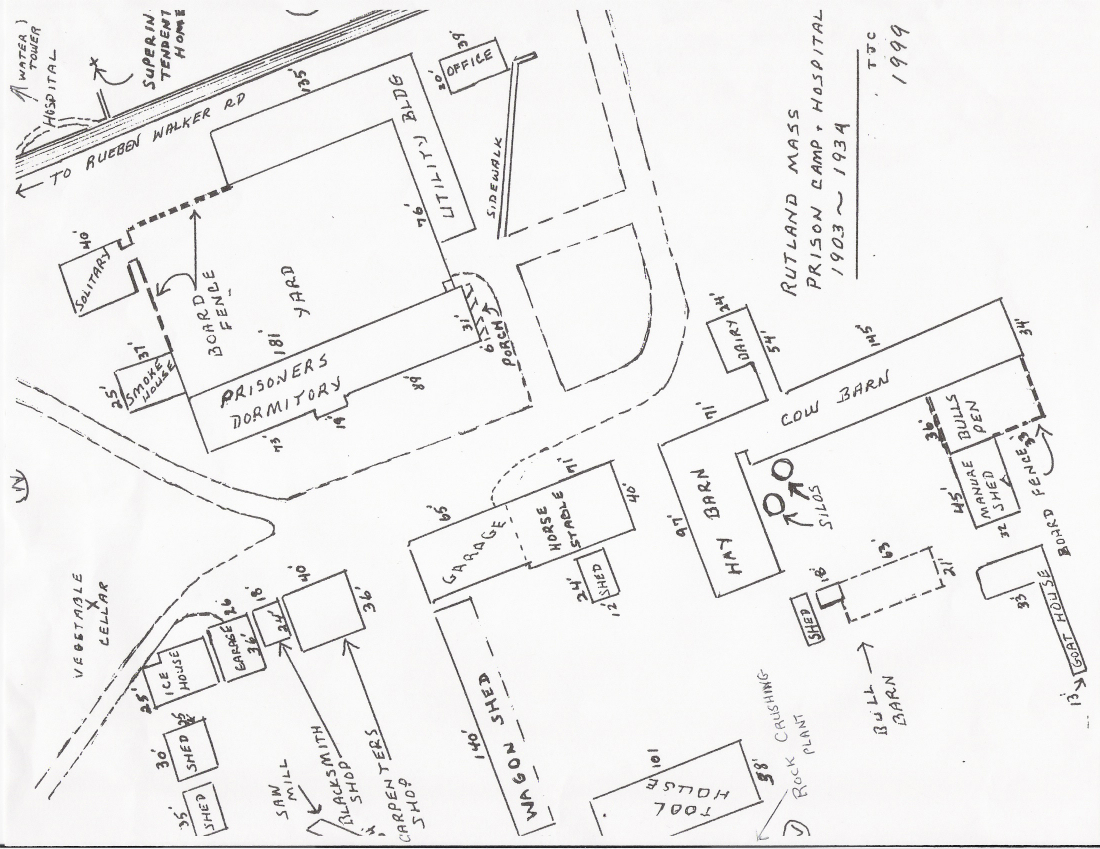 ↑ WATER
TOWER
HOSPITAL
SUPERIN
TENDENT
HOME
← TO RUEBEN WALKER RD
135'
39'
20'
OFFICE
UTILITY BLDG
76'
SIDEWALK
40'
SOLITARY
BOARD
FENCE
YARD
25'
37'
SMOKE
HOUSE
181'
PRISONERS
DORMITORY
73'
19'
89'
31'
6'
PORCH
RUTLAND MASS
PRISON CAMP & HOSPITAL
1903 ~ 1934
TJC
1999
N
VEGETABLE
X
CELLAR
65'
GARAGE
71'
HORSE
STABLE
40'
24'
12'
SHED
24'
DAIRY
54'
71'
145'
COW BARN
34'
97'
HAY BARN
SILOS
36'
BULLS
PEN
33'
45'
MANURE
SHED
32
BOARD FENCE
25'
ICE
HOUSE
26'
GARAGE
36'
18'
24'
40'
36'
30'
SHED
35'
SHED
SAW
MILL
BLACKSMITH
SHOP
CARPENTERS
SHOP
140'
WAGON SHED
101
TOOL
HOUSE
58'
ROCK CRUSHING
PLANT
SHED
18'
63'
21'
BULL
BARN
33'
GOAT HOUSE
13'